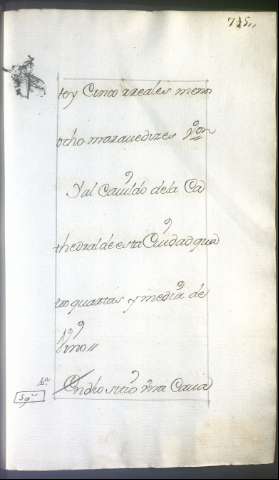 715
to y Cinco rreales menos
ocho marauedizes Von
Y al Cauildo de la Ca
thedral de esta Ciudad qua
tro quartas y media de
Vino
59
En dho sitio Vna Caua